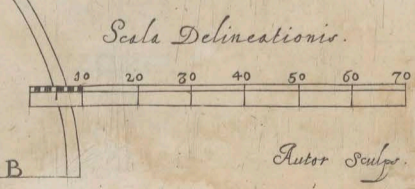 Scala Delineationis.
10 20 30 40 50 60 70
B
Autor Sculps.